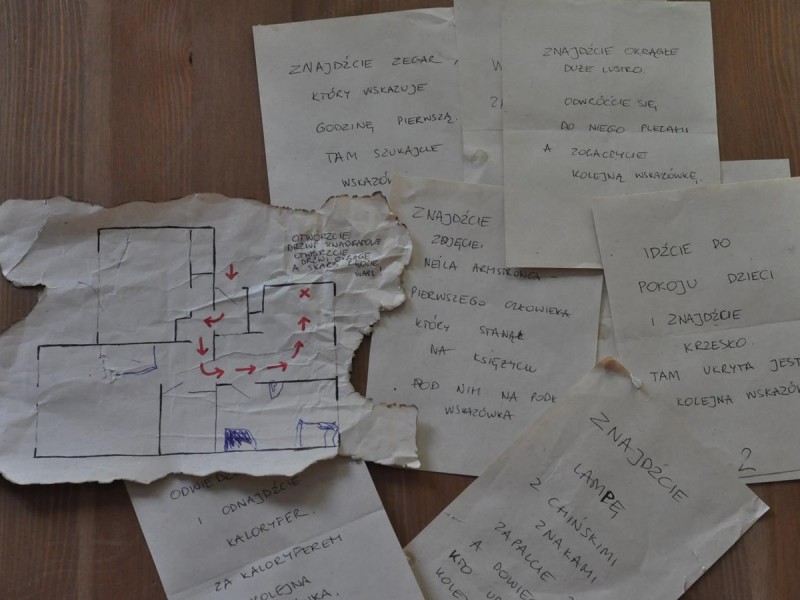 ZNAJDŹCIE ZEGAR,
KTÓRY WSKAZUJE
GODZINĘ PIERWSZĄ.
TAM SZUKAJCIE
WSKAZÓW
W
ZNAJDŹCIE OKRĄGŁE
DUŻE LUSTRO.
ODWRÓĆCIE SIĘ
DO NIEGO PLECAMI
A ZOBACZYCIE
KOLEJNĄ WSKAZÓWKĘ.
OTWÓRZCIE
DRZWI
OTWÓRZCIE
DRZWI
A SKARB BĘDZIE
WASZ!
X
ZNAJDŹCIE
ZDJĘCIE
NEILA ARMSTRONGA
PIERWSZEGO CZŁOWIEKA
KTÓRY STANĄŁ
NA KSIĘŻYCU
POD NIM NA PODŁ
WSKAZÓWKA
IDŹCIE DO
POKOJU DZIECI
I ZNAJDŹCIE
KRZESKO.
TAM UKRYTA JEST
KOLEJNA WSKAZÓW
2
ODWIED
I ODNAJDŹCIE
KALORYFER.
ZA KALORYFEREM
KOLEJNA
ZNAJDŹCIE
LAMPĘ
Z CHIŃSKIMI
ZNAKAMI
ZAPALCIE
A DOWIE
KTO
KOLEJ